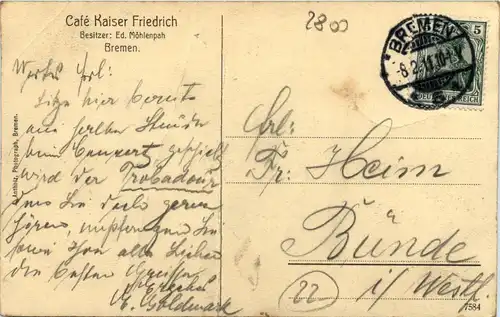 Café Kaiser Friedrich
Besitzer: Ed. Möhlenpah
Bremen.
2800
BREMEN
8.2.
5
DEUTSCHES REICH
Wertes Frl:
Sitze hier bereits
eine halbe Stunde
beim Conzert, gespielt
wird der Trobadour
das Sie doch gerne
hören, empfangen Sie
sowie Ihre alle Lieben
die besten Grüsse
E. Goldmark
Photograph, Bremen.
Frl:
Fr: Heim
Bünde
i/ Westf.
22
7584